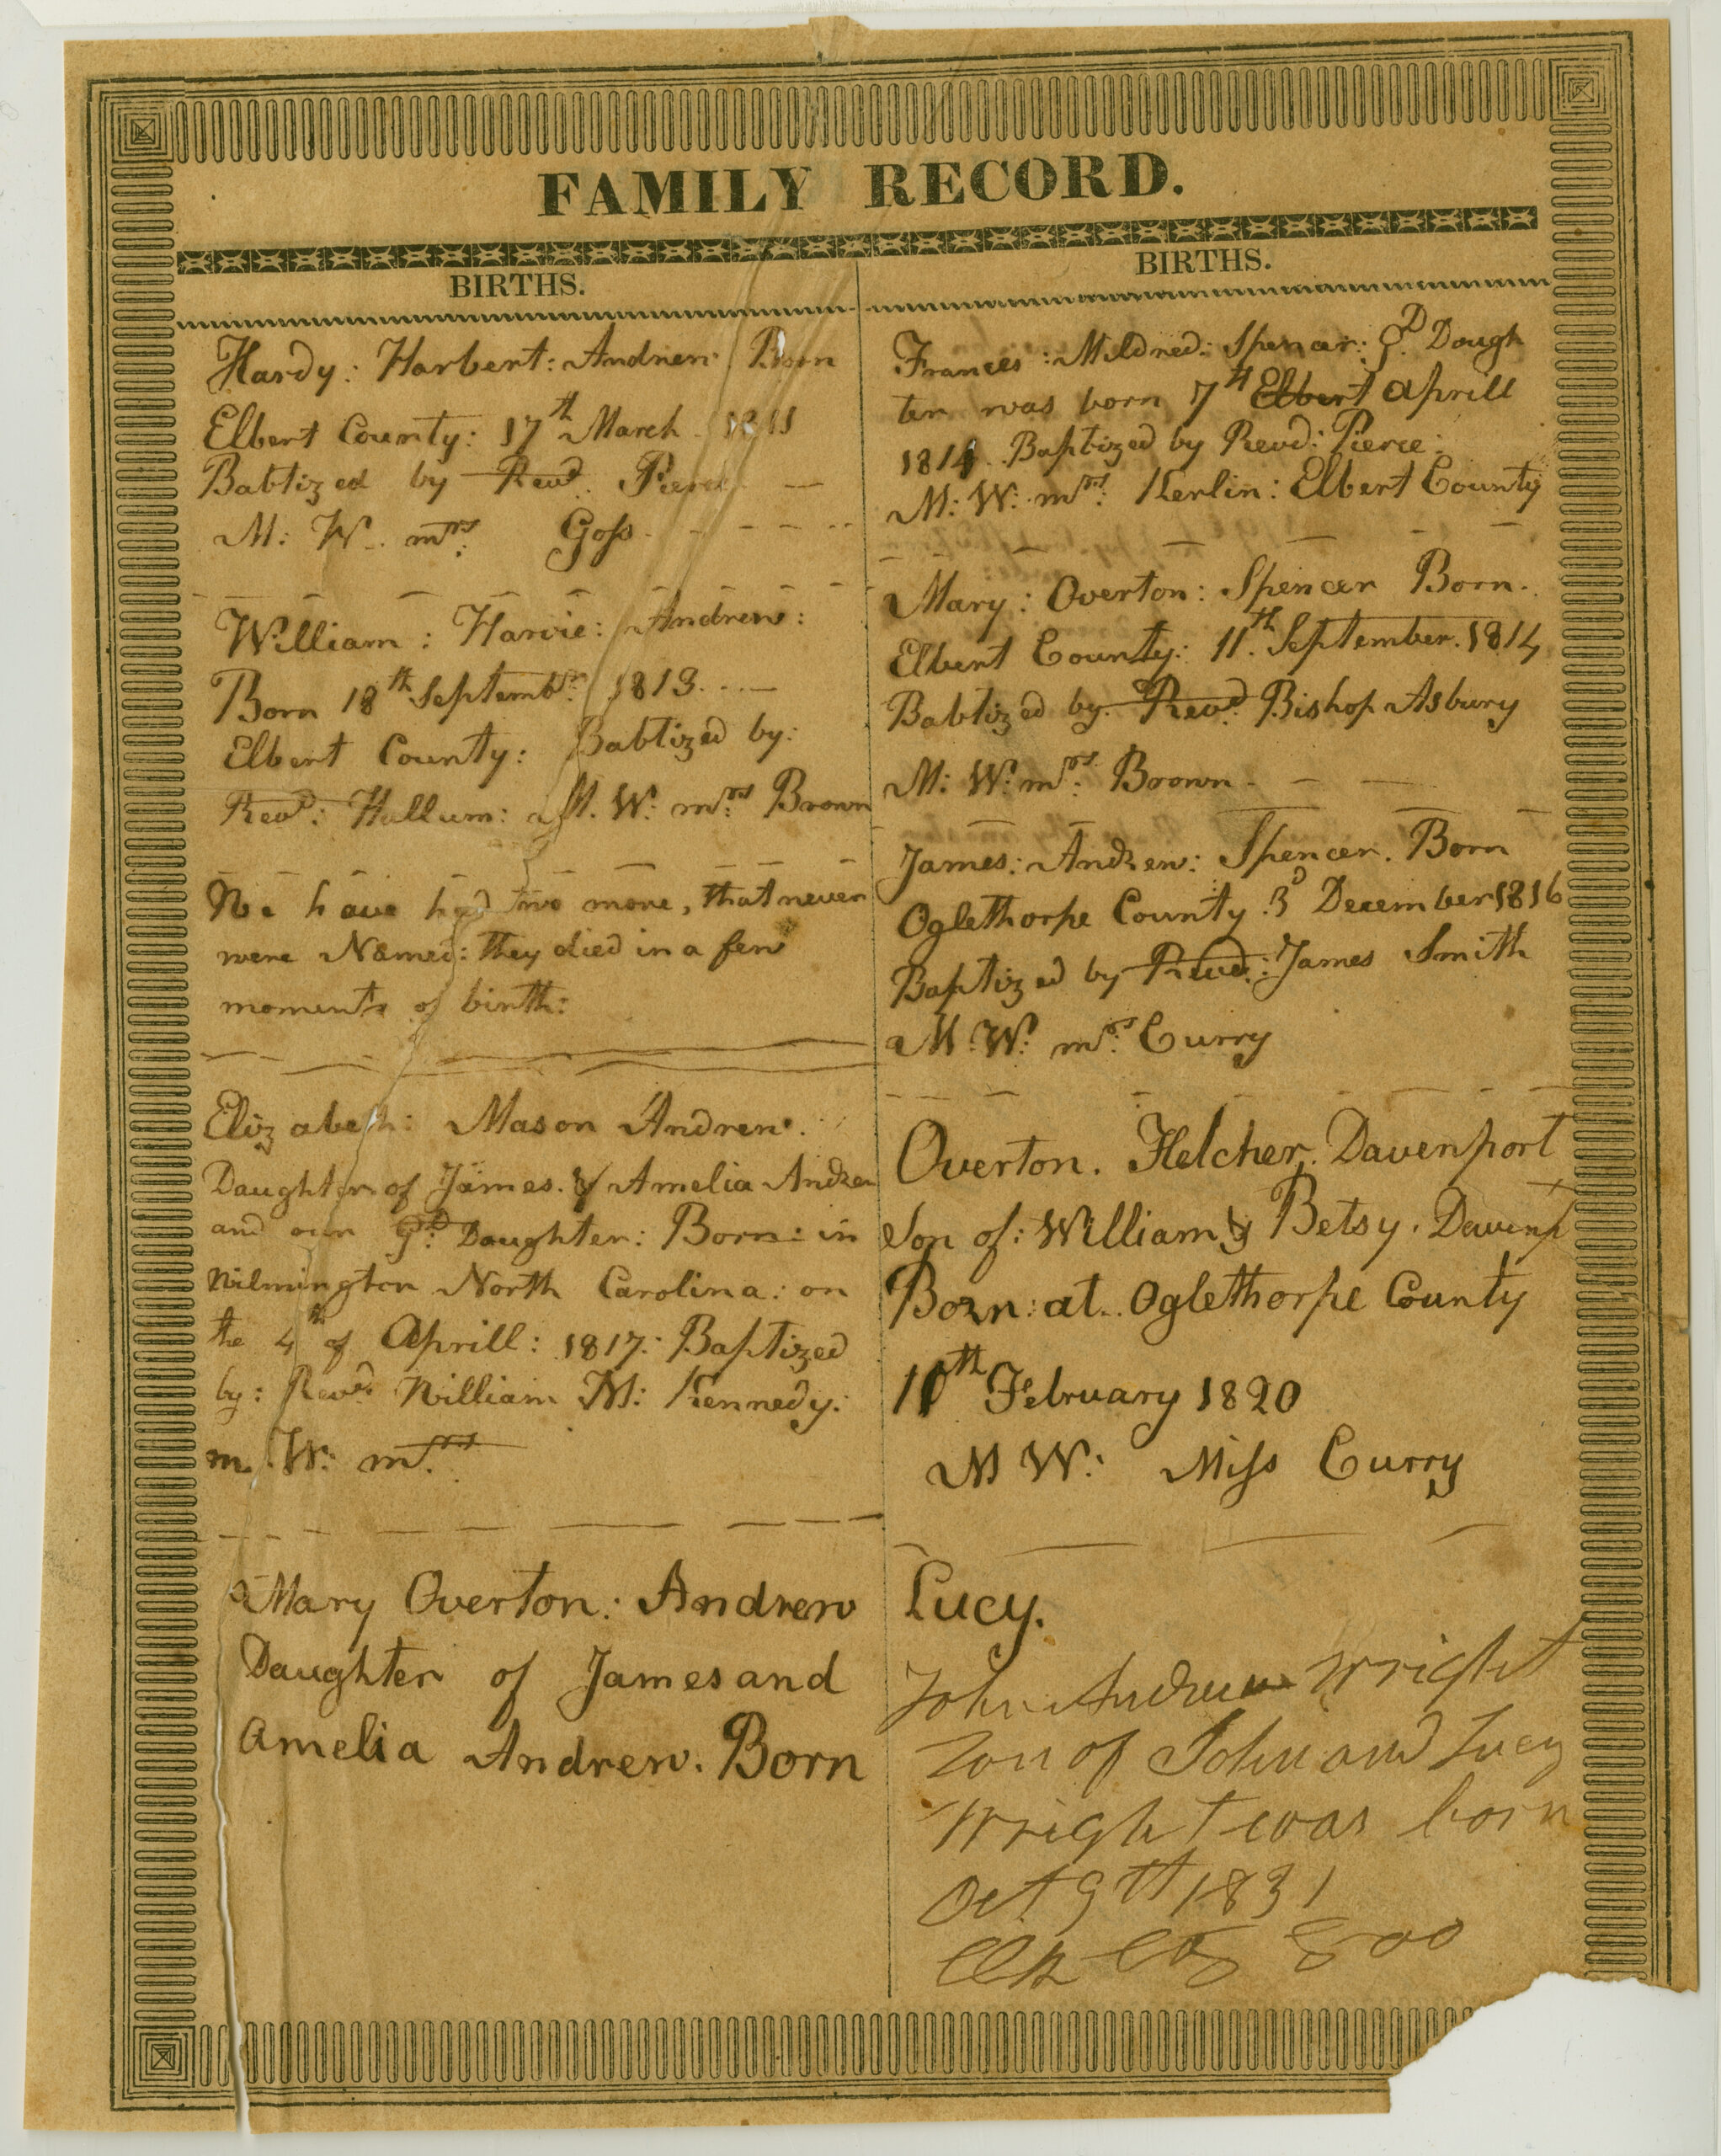 FAMILY RECORD.
BIRTHS.
Hardy: Harbert: Andrew Born
Elbert County: 17th March 1811
Babtized by Revd. Pierce
M: W. mrs: Goss
William: Harvie: Andrew:
Born 18th Septembr: 1813.
Elbert County: Babtized by:
Revd: Hullum: M. W: mrs Brown
We have had two more, that never
were Named: they died in a few
moments of birth:
Elizabeth: Mason Andrew.
Daughter of James. & Amelia Andrew
and our Gd: Daughter: Born: in
Wilmington North Carolina: on
the 4th of Aprill: 1817: Baptized
by: Revd William M: Kennedy:
m. W: mrs:
Mary Overton: Andrew
Daughter of James and
Amelia Andrew. Born
BIRTHS.
Frances: Mildred: Spencer: GD. Dough
ter was born 7th Elbert Aprill
1814. Baptized by Revd: Pierce:
M: W: mrs: Kerlin: Elbert County
Mary: Overton: Spencer Born.
Elbert County: 11th. September. 1814
Babtized by. Revd. Bishop Asbury
M: W: mrs: Boown
James: Andrew: Spencer. Born
Oglethorpe County. 3d December 1816
Baptized by Revd: James Smith
M. W: mrs: Curry
Overton. Fletcher. Davenport
Son of: William & Betsy. Davenp
Born: at.. Oglethorpe County
10th February 1820
M W: Miss Curry
Lucy.
John Andrew Wright
Son of John and Lucy
Wright was born
Oct 9th 1831